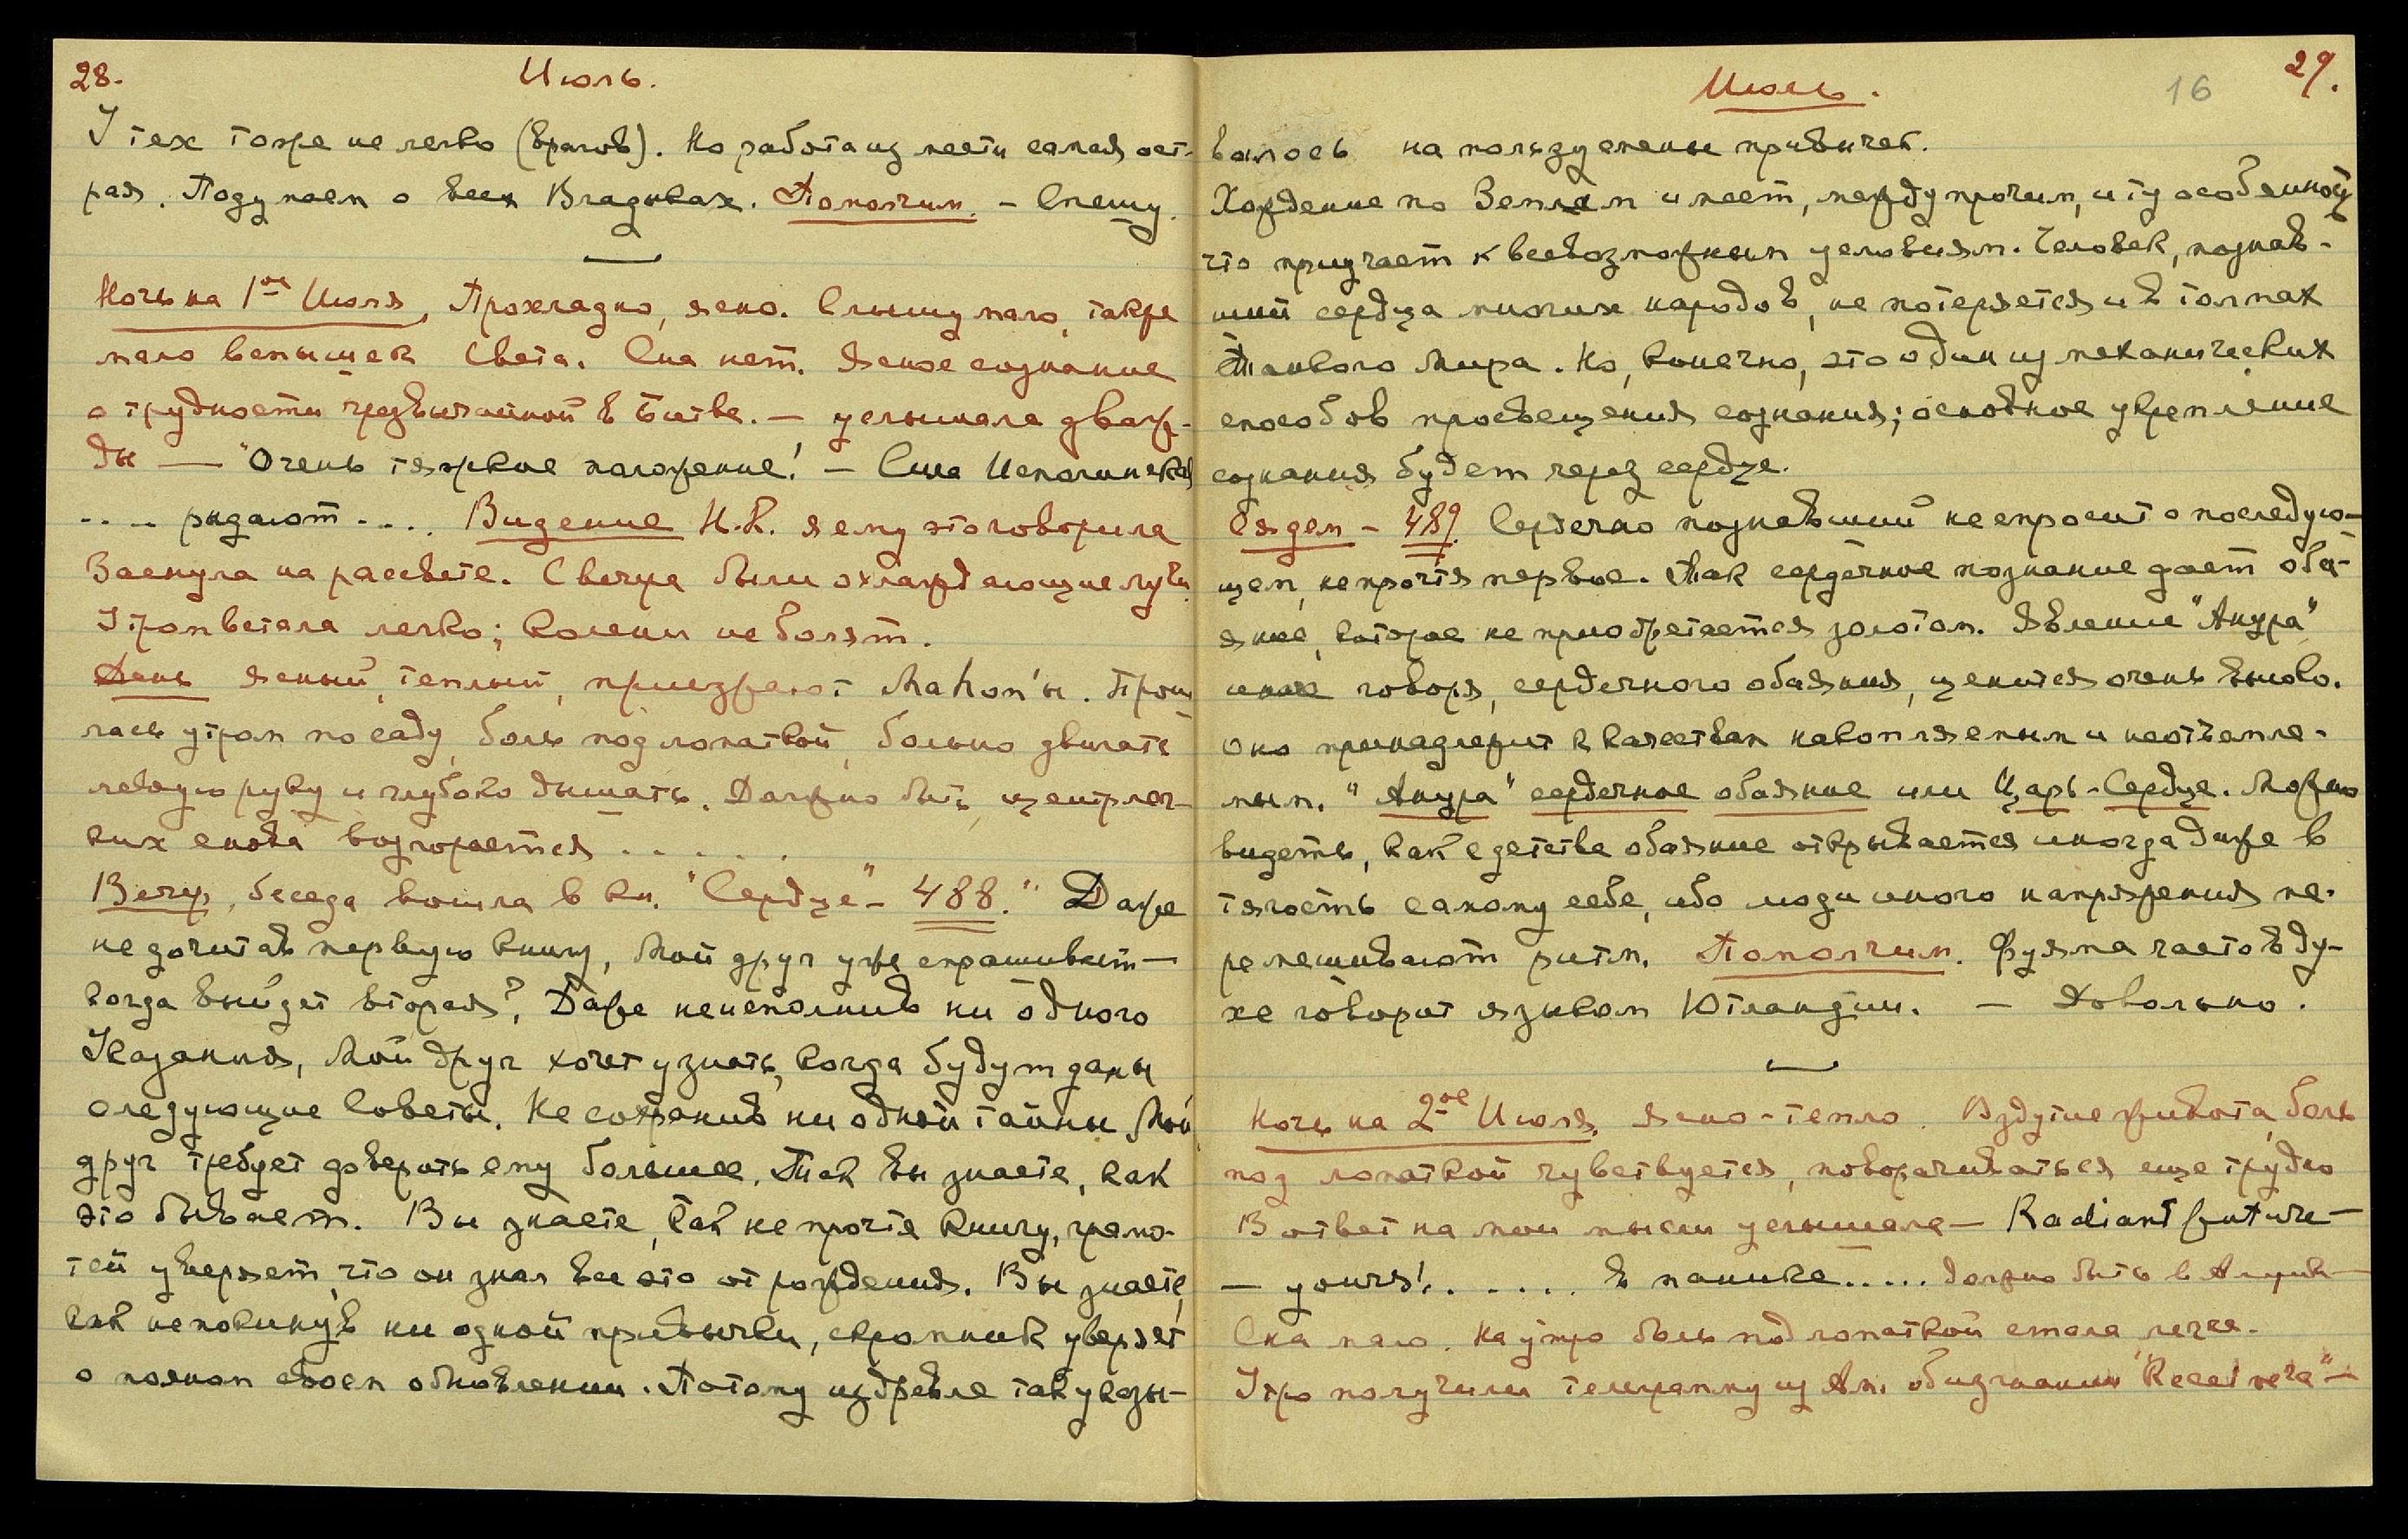 28.
Июль.
У тех тоже не легко (врагов). Но работа из мести самая ост-
рая. Подумаем о всех Владыках. Помолчим. – Спешу.
Ночь на 1ое Июля, Прохладно, ясно. Слышу мало, также
мало вспышек света. Сна нет. Ясное сознание
о трудности чрезвычайной в битве. — услышала дваж-
ды — "Очень тяжкое положение! – Сила Исполинская
.... рыдают.... Видение Н.К. я ему это говорила
Заснула на рассвете. С вечера были охлаждающие лучи.
Утром встала легко; колени не болят.
День ясный, теплый, приезжают Mahon'ы.
лась утром по саду, боль под лопаткой, больно двигать
левую руку и глубоко дышать. Должно быть, центр лег-
ких снова возгорается . . . . . .
Вечер, беседа вошла в кн. "Сердце" – 488." Даже
не дочитав первую книгу, Мой друг уже спрашивает —
когда выйдет вторая? Даже неисполнив ни одного
Указания, Мой друг хочет узнать, когда будут даны
следующие Советы. Не сохранив ни одной тайны Мой
друг требует доверить ему большее. Так вы знаете, как
это бывает. Вы знаете, как не прочтя книгу, грамо-
тей уверяет, что он знал все это от рождения. Вы знаете,
как непокинув ни одной привычки, скромник уверяет
о полном своем обновлении. Потому издревле так указы-
Июль.
16
29.
валось на пользу смены привычек.
Хождение по Землям имеет, между прочим, и ту особенность
что приучает к всевозможным условиям. Человек, познав-
ший сердца многих народов, не потеряется и в толпах
Тонкого Мира. Но, конечно, это один из механических
способов просвещения сознания; основное укрепление
сознания будет через сердце.
489. Сердечно познавший не спросит о последую-
щем, не прочтя первое. Так сердечное познание дает оба-
яние, которое не приобретается золотом. Явление "Анура"
иначе говоря, сердечного обаяния, ценится очень высоко.
Оно принадлежит к качествам накопляемым и неотъемле-
мым. "Анура" сердечное обаяние или Царь-Сердце. Можно
видеть, как с детства обаяние открывается иногда даже в
тягость самому себе, ибо люди иного напряжения пе-
ремешивают ритм. Помолчим. Фуяма часто в ду-
хе говорит языком Ютландии. — Довольно.
Ночь на 2ое Июля, ясно-тепло. Вздутие живота, боль
под лопаткой чувствуется, поворачиваться еще трудно
В ответ на мои мысли услышала — Radiant future —
— yours! . . . . . в панике..... должно быть в
Сна мало. На утро боль под лопаткой стала легче.
Утро получили телеграмму из Ам.